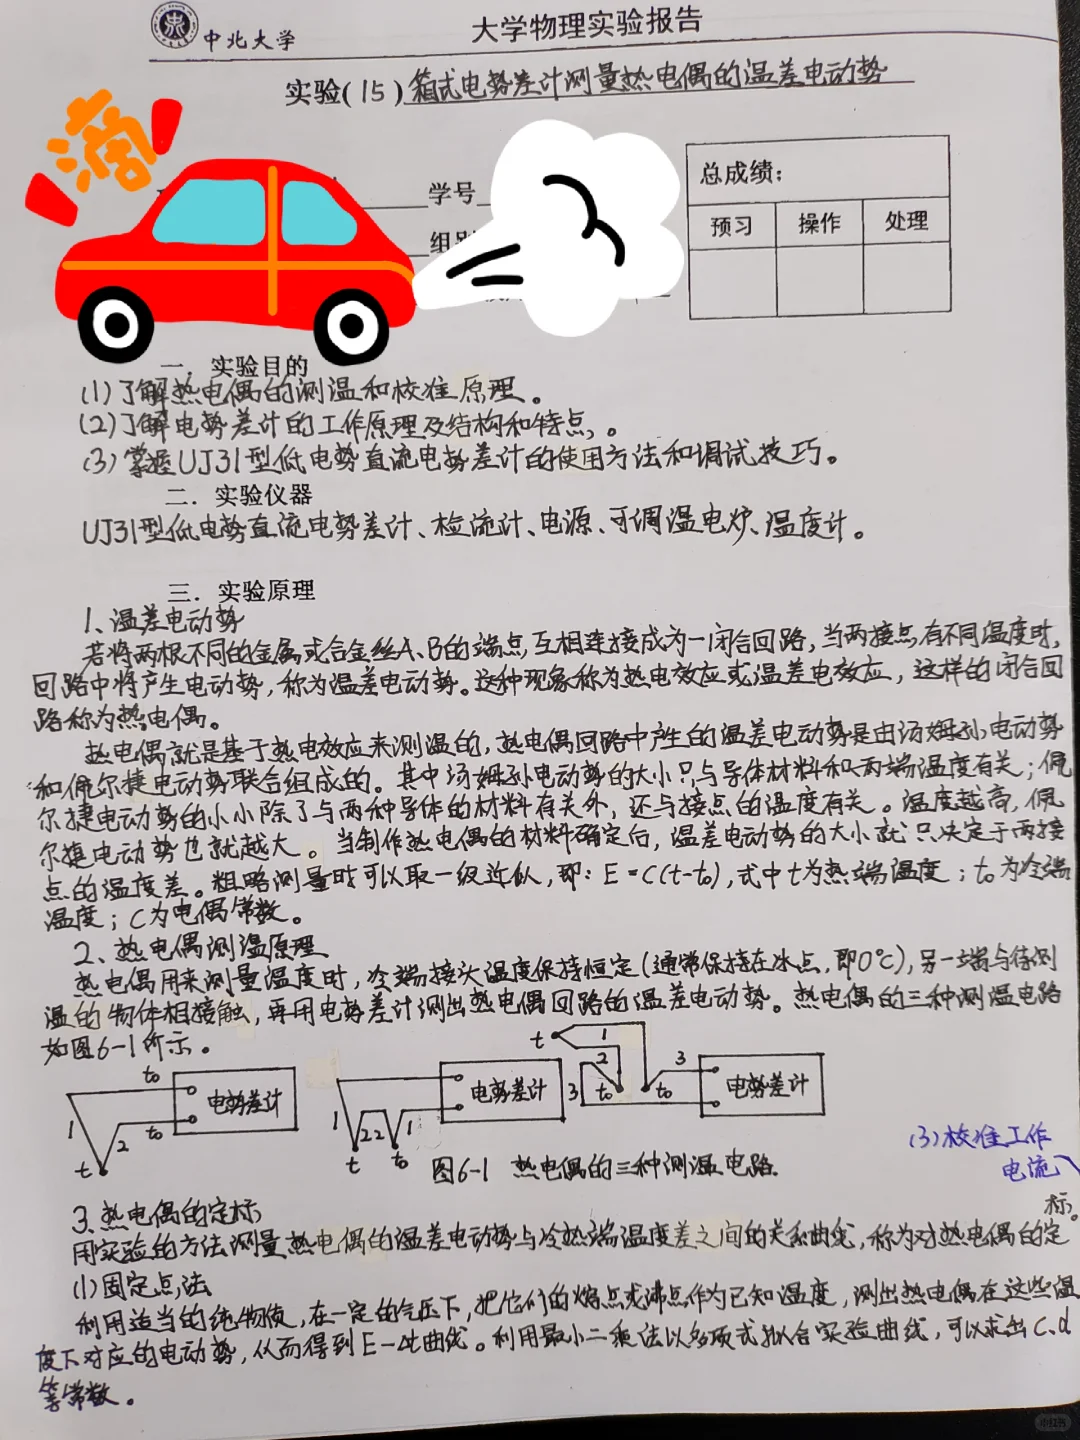 中北大学
大学物理实验报告
实验(15)箱式电势差计测量热电偶的温差电动势
滴
学号
总成绩:
组别
预习 操作 处理
一.实验目的
(1)了解热电偶的测温和校准原理。
(2)了解电势差计的工作原理及结构和特点,。
(3)掌握UJ31型低电势直流电势差计的使用方法和调试技巧。
二.实验仪器
UJ31型低电势直流电势差计、检流计、电源、可调温电炉、温度计。
三.实验原理
1、温差电动势
若将两根不同的金属或合金丝A、B的端点互相连接成为一闭合回路,当两接点有不同温度时,
回路中将产生电动势,称为温差电动势。这种现象称为热电效应或温差电效应,这样的闭合回
路称为热电偶。
热电偶就是基于热电效应来测温的,热电偶回路中产生的温差电动势是由汤姆孙电动势
和佩尔捷电动势联合组成的。其中汤姆孙电动势的大小只与导体材料和两端温度有关;佩
尔捷电动势的小小除了与两种导体的材料有关外,还与接点的温度有关。温度越高,佩
尔捷电动势也就越大。当制作热电偶的材料确定后,温差电动势的大小就只决定于两接
点的温度差。粗略测量时可以取一级近似,即:E=C(t-t₀),式中t为热端温度;t₀为冷端
温度;C为电偶常数。
2、热电偶测温原理
热电偶用来测量温度时,冷端接头温度保持恒定(通常保持在冰点,即0℃),另一端与待测
温的物体相接触,再用电势差计测出热电偶回路的温差电动势。热电偶的三种测温电路
如图6-1所示。
t₀ 电势差计 1 2 t₀ t
电势差计 1 2 2 1 t t₀
t 1 2 3 3 t₀ t₀ 电势差计
图6-1 热电偶的三种测温电路
(3)校准工作
电流
3.热电偶的定标
标。
用实验的方法测量热电偶的温差电动势与冷热端温度差之间的关系曲线,称为对热电偶的定
(1)固定点法
利用适当的纯物质,在一定的气压下,把它们的熔点或沸点作为已知温度,测出热电偶在这些温
度下对应的电动势,从而得到E-Δt曲线。利用最小二乘法以多项式拟合实验曲线,可以求出C、d
等常数。
小红书